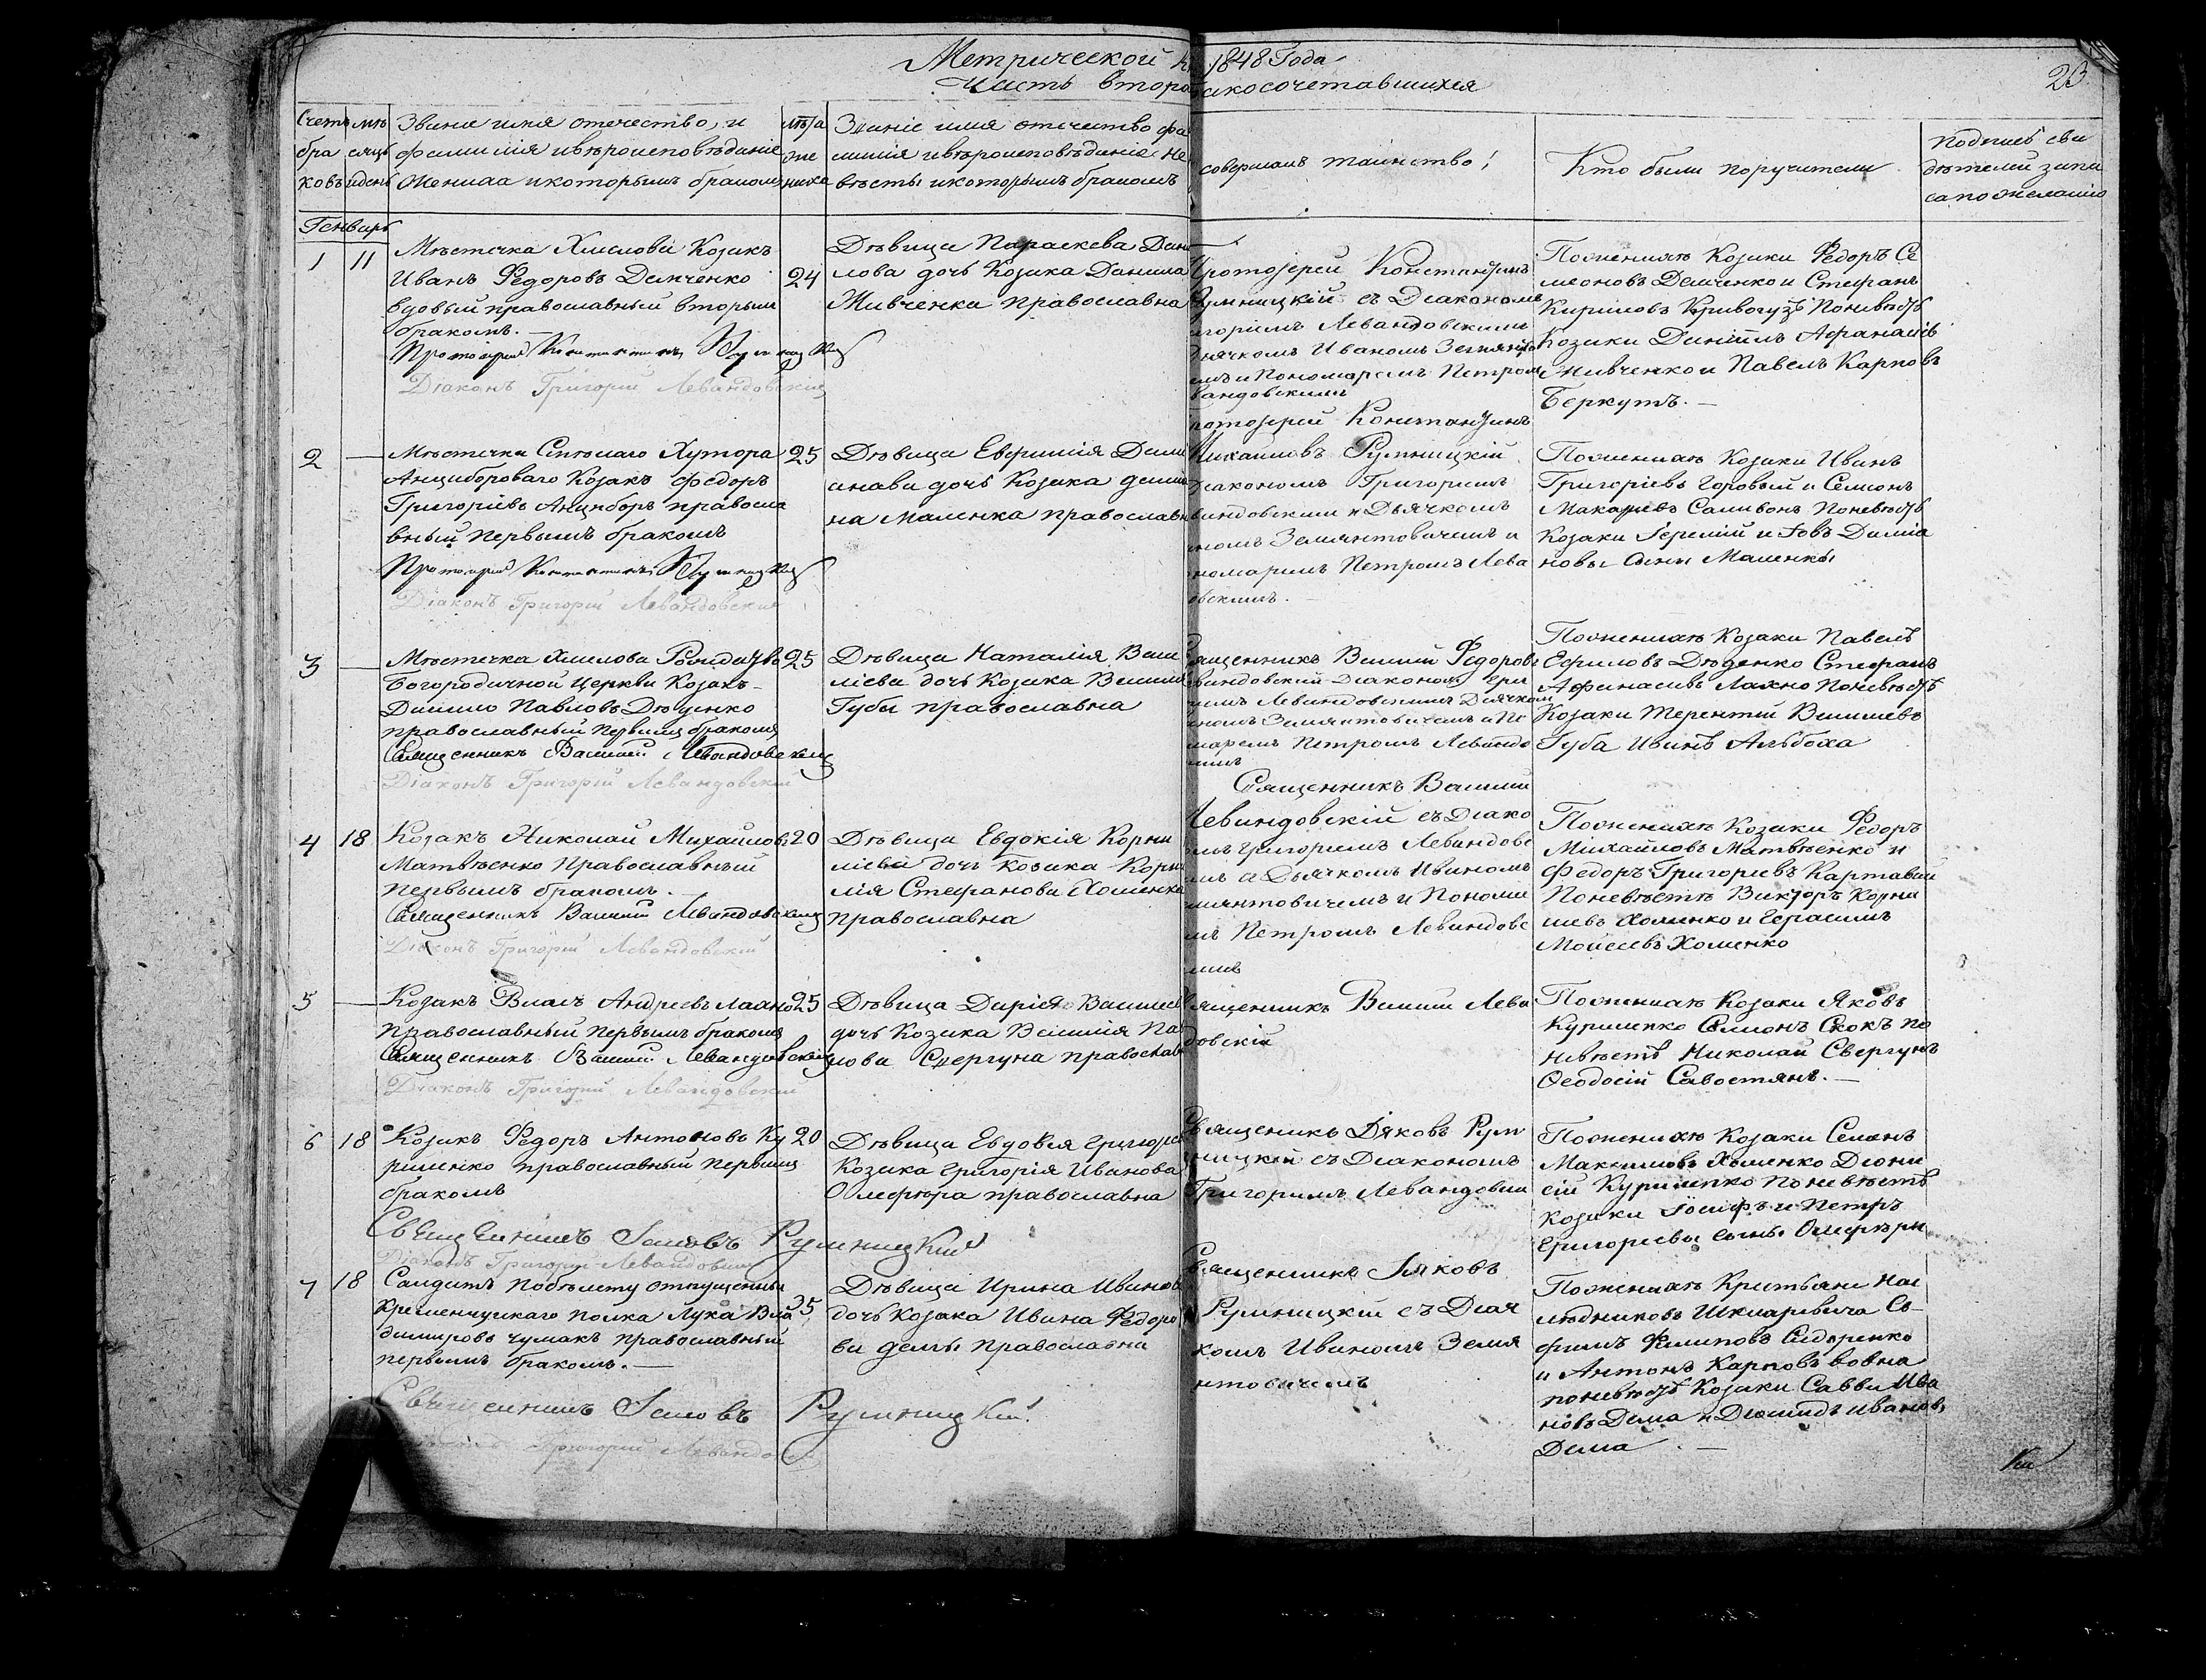 Метрической 1848 Года
Часть втора акосочетавшихся
23
Счетъ бра ковъ
мѣ сяцъ и день
Званіе имя отечество, и
фамилія и вѣроисповѣданіе
Жениха и которымъ бракомъ
лѣта же ниха
Званіе имя отечество фа
милія и вѣроисповѣданіе не
вѣсты и которымъ бракомъ
совершалъ таинство
Кто были поручители
Подпись сви
дѣтелей запи
са по желанію
Генварь
1 11
Мѣстечка Хмелова Козакъ
Иванъ Федоровъ Демченко
вдовый православный вторымъ
бракомъ. —
Протоіерей Константинъ Румницкій
Діаконъ Григорій Левандовскій
24
Дѣвица Параскева Дани
лова дочь Козака Данила
Живченка православна
Протоіерей Константинъ
Румницкій съ Діакономъ
игоріемъ Левандовскимъ
Дьячкомъ Иваномъ Земянто
емъ и Пономаремъ Петром
вандовскимъ
По женихѣ Козаки Федоръ Се
меоновъ Демченко и Стефанъ
Кириловъ Кривогузъ По невѣстѣ
Козаки Даніилъ Афанасіевъ
Живченко и Павелъ Карповъ
Беркутъ. —
2 —
Мѣстечка Смѣлаго Хутора
Анцибороваго Козакъ Федоръ
Григоріевъ Анциборъ правосла
вный первымъ бракомъ
Протоіерей Константинъ Румницкій
Діаконъ Григорій Левандовскій
25
Дѣвица Евфимія Деми
анова дочь Козака Демия
на Маленка православн
ротоіерей Константинъ
Михаиловъ Румницкій
Діакономъ Григоріемъ
вандовскимъ и Дьячкомъ
номъ Земянтовичемъ и
номаремъ Петромъ Лева
овскимъ. —
По женихѣ Козаки Иванъ
Григоріевъ Горовый и Семіонъ
Макаріевъ Саливонъ По невѣстѣ
Козаки Іеремій и Іовъ Даміа
новы Сыны Маленкы
3 —
Мѣстечка Хмелова Рождества
Богородичной Церкви Козакъ
Данило Павловъ Дяденко
православный первымъ бракомъ
Священникъ Василій Левандовскій
Діаконъ Григорій Левандовскій
25
Дѣвица Наталія Васи
ліева дочь Козака Василия
Губы православна
вященникъ Василій Федоровъ
вандовскій Діакономъ Гри
ріемъ Левандовскимъ Дьячком
номъ Земянтовичемъ и По
маремъ Петромъ Левандо
кимъ
По женихѣ Козаки Павелъ
Ефимовъ Дяденко Стефанъ
Афанасіевъ Лахно По невѣстѣ
Козаки Терентій Василіевъ
Губа Иванъ Альбоха
4 18
Козакъ Николай Михаиловъ
Матвѣенко Православный
Первымъ бракомъ. —
Священникъ Василий Левандовскій
Діаконъ Григорій Левандовскій
20
Дѣвица Евдокія Корни
ліева дочь Козака Корни
лія Стефанова Хоменка
православна
Священникъ Василий
Левандовскій съ Діако
мъ Григоріемъ Левандовс
мъ и Дьячкомъ Иваномъ
мянтовичемъ и Пономи
мъ Петромъ Левандовс
имъ
По женихѣ Козаки Федоръ
Михайловъ Матвѣенко и
Федоръ Григоріевъ Картавий
По невѣстѣ Викторъ Корни
ліевъ Хоменко и Герасимъ
Моисеевъ Хоменко
5 —
Козакъ Власъ Андреевъ Лахно
Православный Первымъ бракомъ
Священникъ Василий Левандовскій
Діаконъ Григорій Левандовскій
25
Дѣвица Дарія Василіев
дочь Козака Василія Па
лова Свергуна православ
вященникъ Василий Лева
довскій
По женихѣ Козаки Яковъ
Куриленко Семіонъ Скокъ по
невѣстѣ Николай Свергунъ
Феодосій Савостянъ. —
6 18
Козакъ Федоръ Антоновъ Ку
риленко православный первымъ
бракомъ
Священникъ Іаковъ Румницкій
Діаконъ Григорій Левандовский
20
Дѣвица Евдокія Григорев
Козака Григорія Иванова
Омефира православна
Священикъ Діяковъ Рум
ницкій съ Діакономъ
Григоримъ Левандовски
По женихѣ Козаки Семіонъ
Максимовъ Хоменко Діони
сій Куриленко по невѣстѣ
Козаки Іосифъ и Петръ
Григориевы сыны Омефиры
7 18
Солдатъ по билету отпущенный
Кременчугскаго полка Лука Вла
димировъ Чумакъ православный
первымъ бракомъ. —
Священникъ Іаковъ Румницкій.
Григорій Левандо
35
Дѣвица Ирина Иванов
дочь Козака Ивана Федоро
ва Демы православна
Священникъ Іяковъ
Румницкій съ Діач
комъ Иваномъ Земя
нтовичемъ
По женихѣ Крестьяне Нас
лѣдниковъ Шкляревича Еѳ
фимъ Филиповъ Сидоренко
и Антонъ Карповъ Вовна
по невѣстѣ Козаки Савва Ива
новъ Дема и Діомидъ Ивановъ
Дема. —